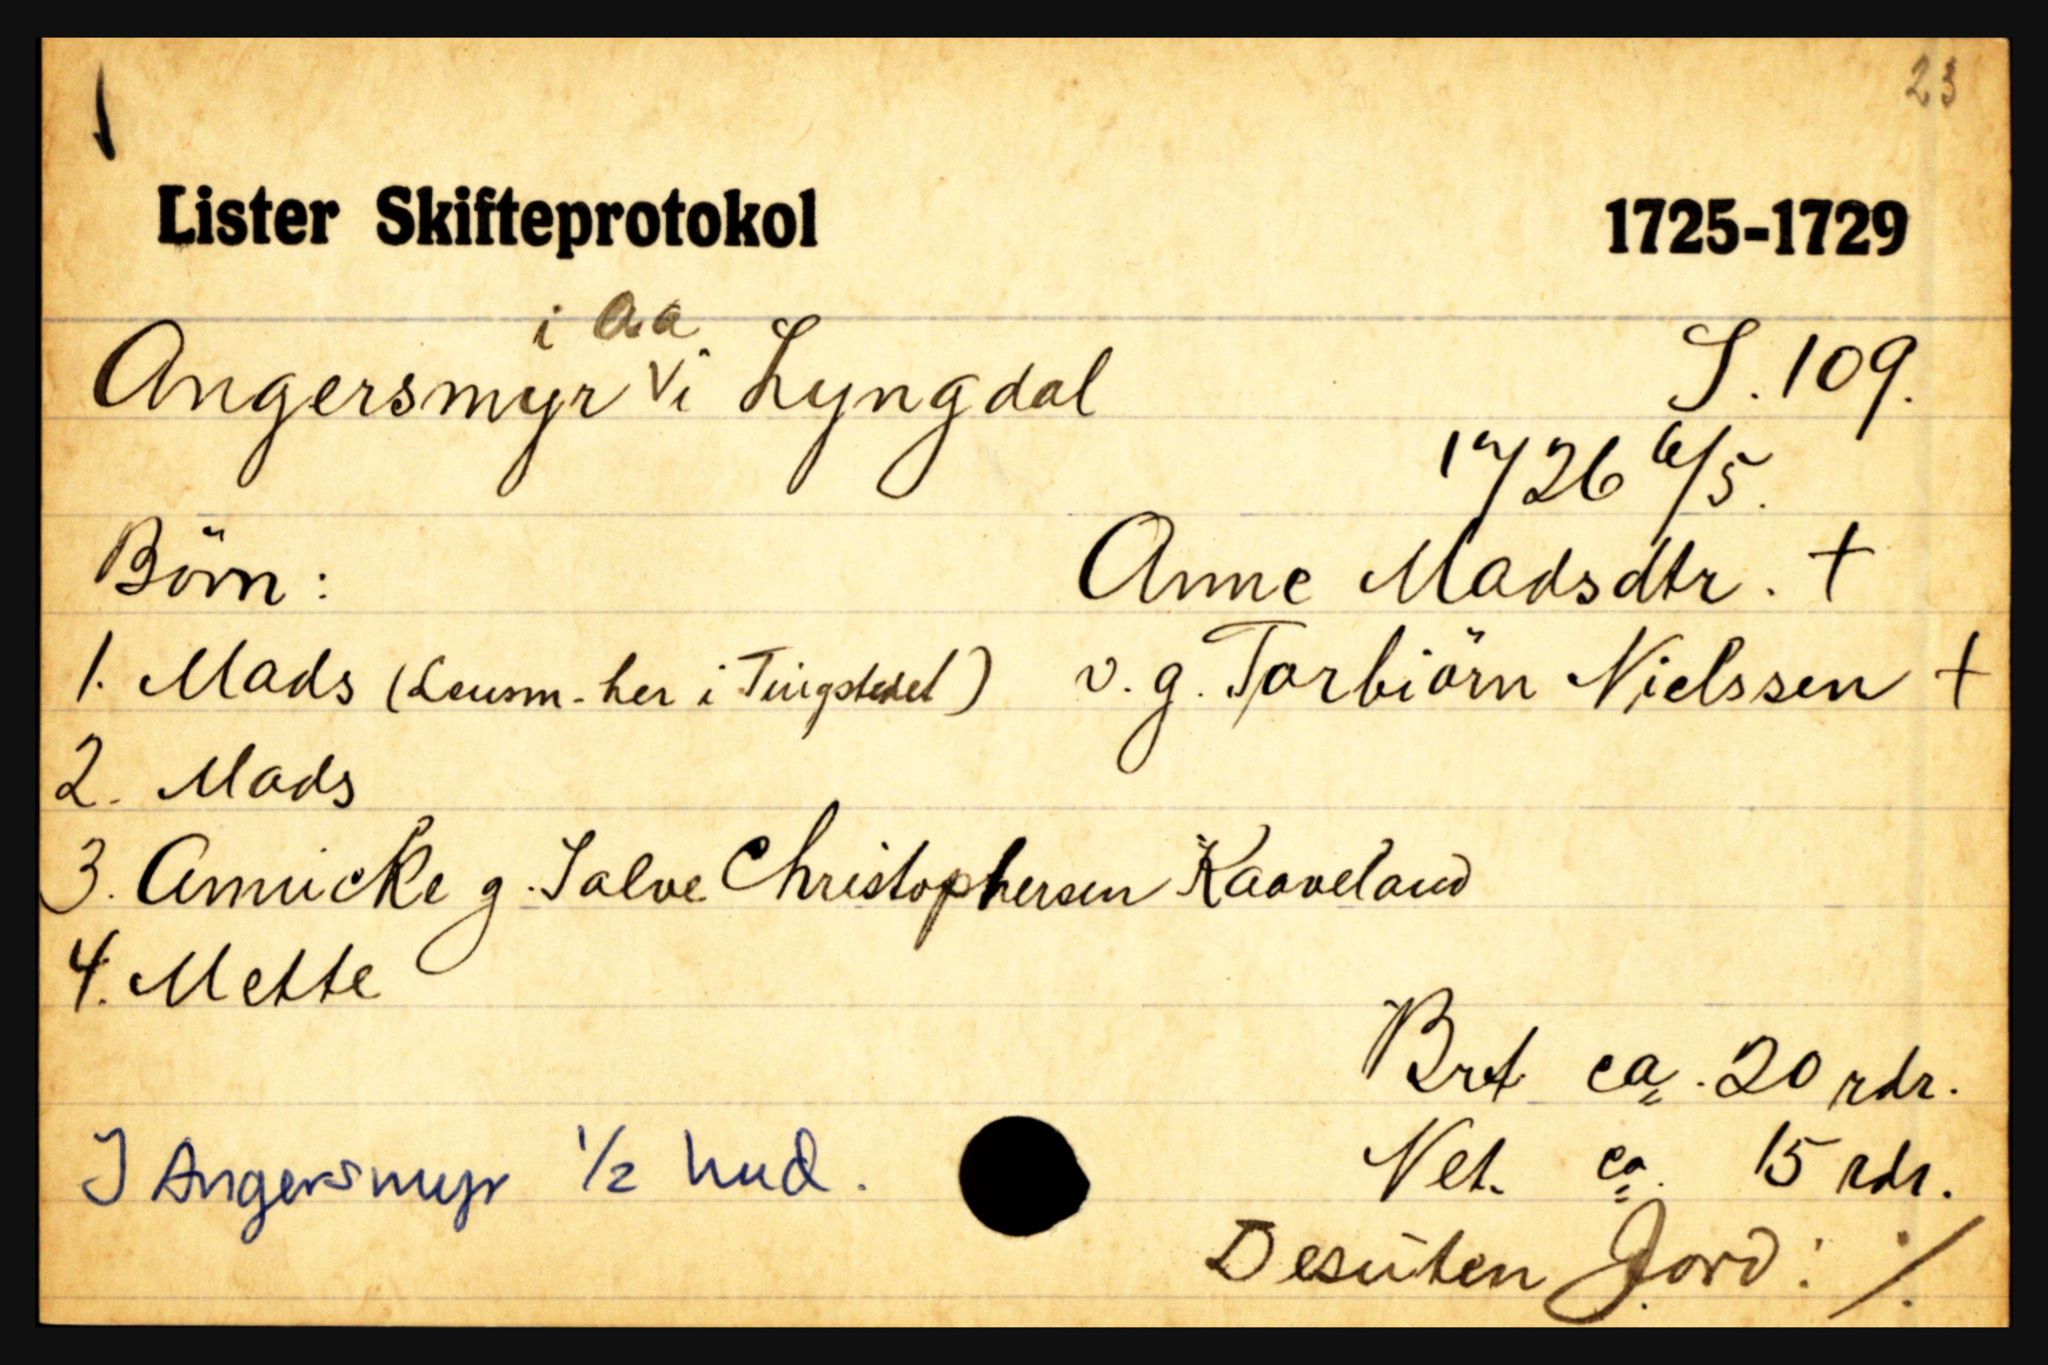 23
Lister Skifteprotokol 1725-1729
i Aa
Angersmyr V i Lyngdal S. 109.
1726 6/5.
Börn: Anne Madsdtr. +
1. Mads (Lensm. her i Tingstedet) v. g. Torbiörn Nielssen +
2. Mads
3. Annicke g. Salve Christophersen Kaaveland
4. Mette
Brt ca. 20 rdr.
I Angersmyr 1/2 hud. Net. ca. 15 rdr.
Desuten Jord: ./.